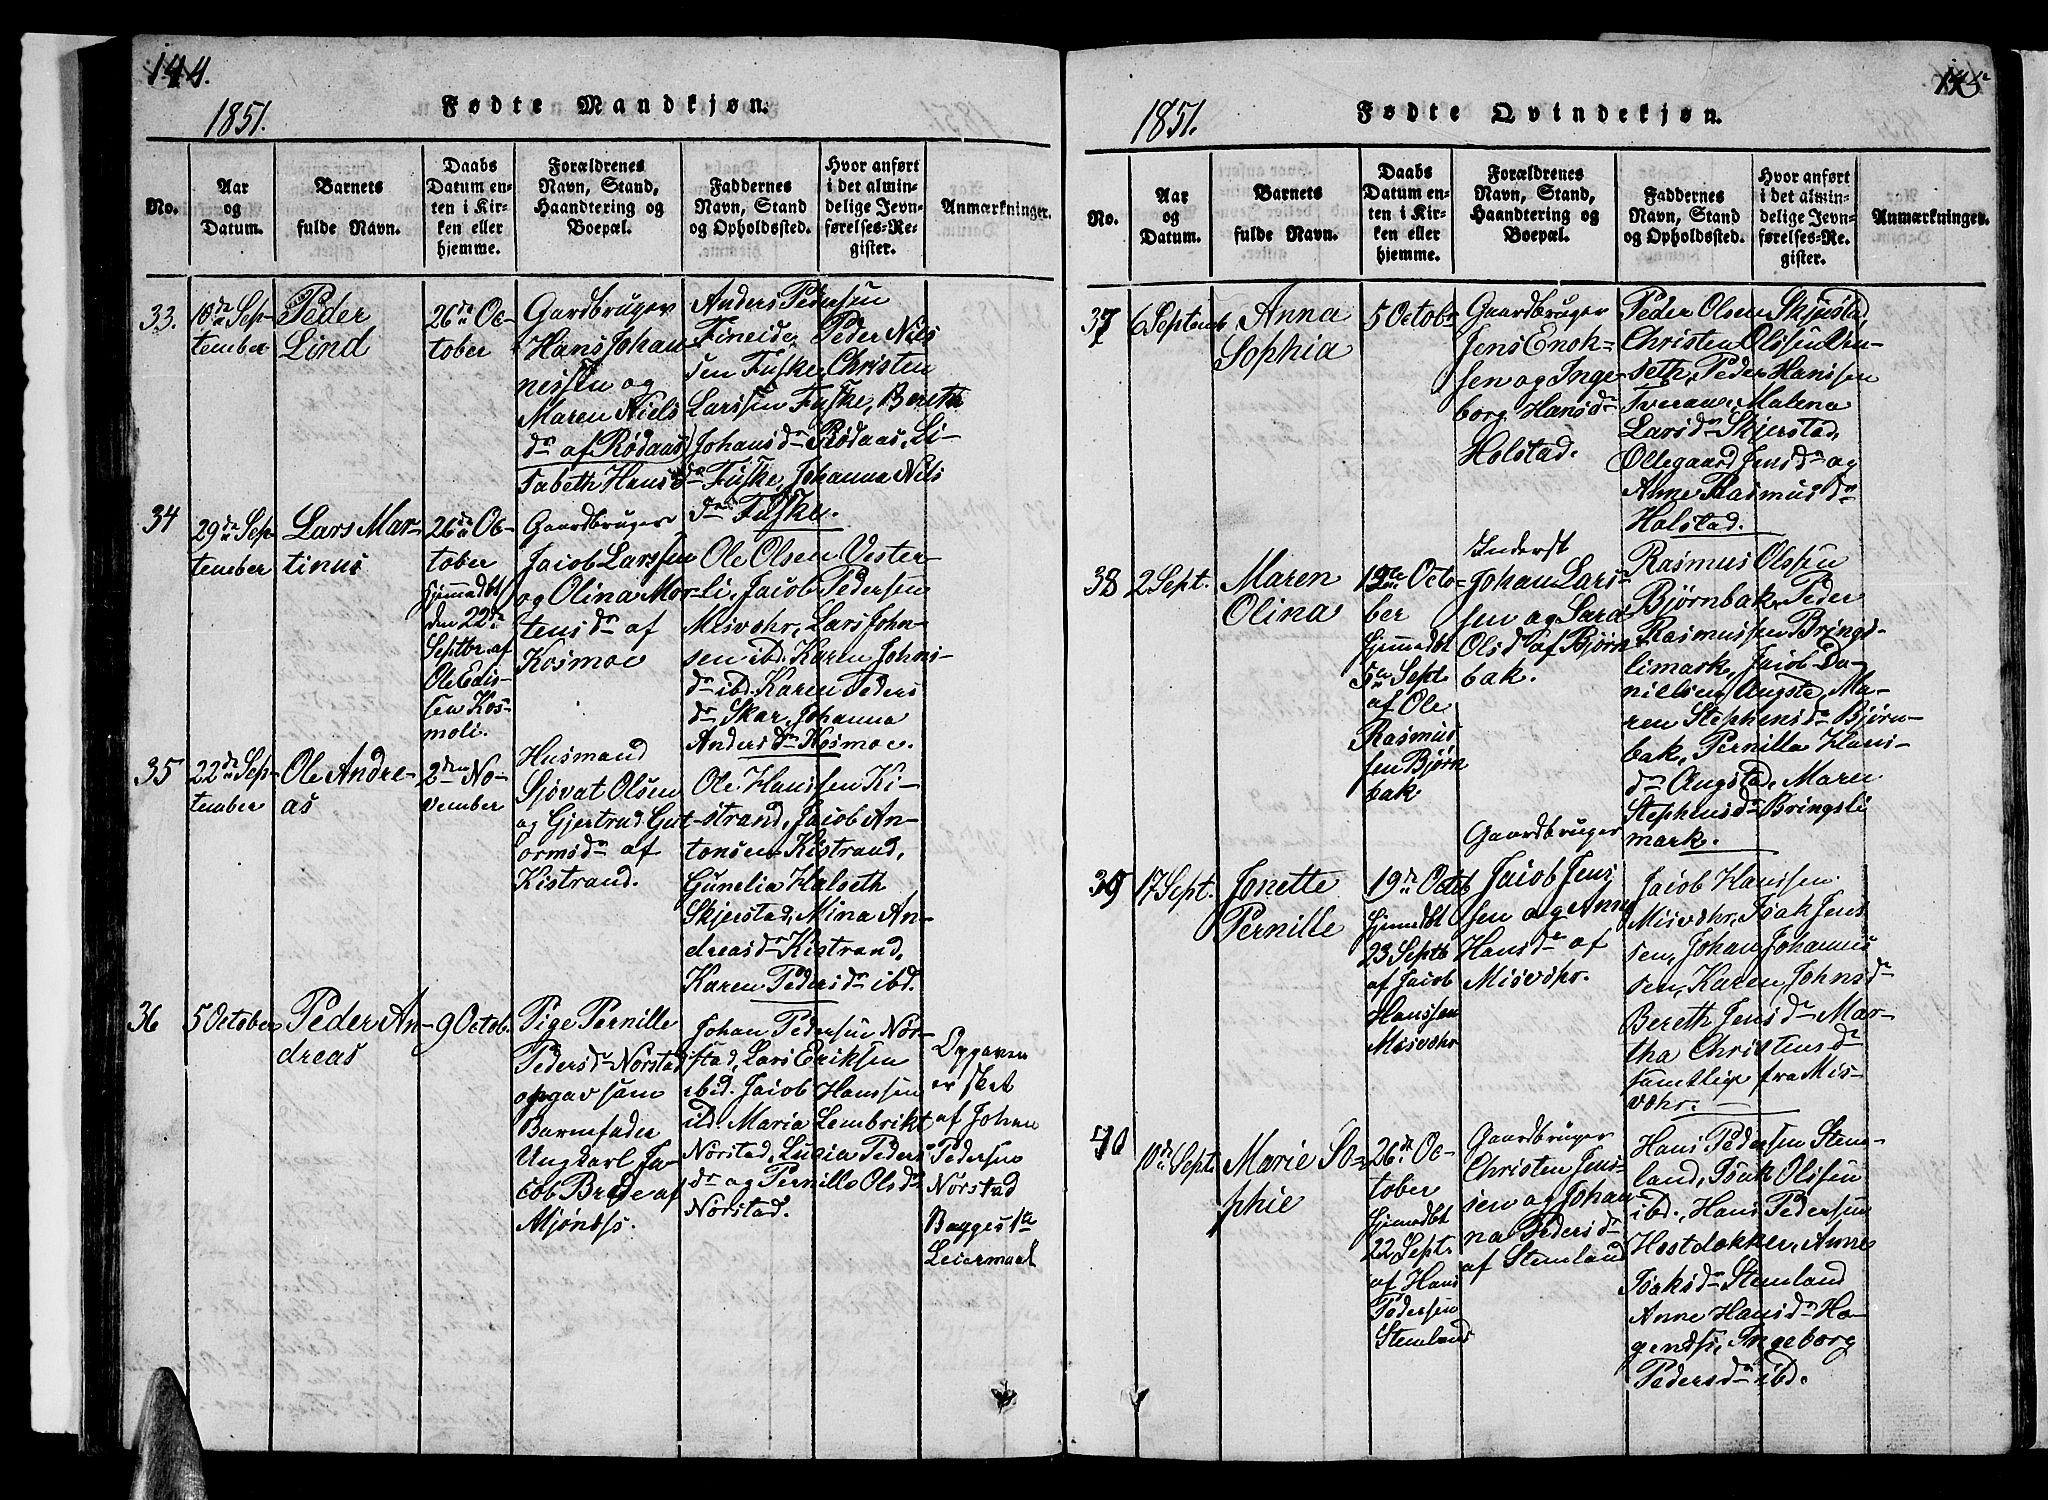 144.
1851.
Fødte Mandkjøn.
No.
Aar
og
Datum.
Barnets
fulde Navn.
Daabs
Datum en-
ten i Kir-
ken eller
hjemme.
Forældrenes
Navn, Stand,
Haandtering og
Boepæl.
Faddernes
Navn, Stand
og Opholdssted.
Hvor anført
i det almin-
delige Jevn-
førelses-Re-
gister.
Anmærkninger.
33.
10de Sep-
tember
Peder
Lind
26de Oc-
tober
Gardbruger
Hans Johan-
nessen og
Maren Niels
dr af Rødaas
Anders Pedersen
Fineide, Peder Nils
sen Fuske, Christen
Larssen Fuske, Bereth
Johansdr Rødaas, Li-
sabeth Hansdr Fuske, Johanna Nils
dr Fuske.
34
29de Sep-
tember
Lars Mar-
tinus
26de Oc-
tober
hjemmedbt
den 22de
Septbr. af
Ole Edis-
sen Kos-
moli.
Gaardbruger
Jacob Larssen
og Olina Mor-
tensdr af
Kosmoe
Ole Olsen Vester-
li, Jacob Pedersen
Misvohr, Lars John-
sen ibd. Karen Johns-
dr ibd. Karen Peders
dr Skar, Johanna
Andersdr Kosmoe.
35
22de Sep-
tember
Ole Andre-
as
2den No-
vember
Husmand
Sjøvat Olsen
og Gjertrud Gut-
ormsdr af
Kistrand.
Ole Hanssen Ki-
strand, Jacob An-
tonsen Kistrand,
Gunelia Halseth
Skjerstad, Mina An-
dreasdr Kistrand,
Karen Pedersdr ibd.
36
5 October
Peder An-
dreas
9 Octob.
Pige Pernille
Pedersdr Norstad
opgav som
Barnefader
Ungkarl Ja-
cob Brede af
Mjønæs.
Johan Pedersen Nor-
stad, Lars Eriksen
ibd. Jacob Hanssen
ibd. Maria Lembrikt
Norstad, Lucia Peders
dr og Pernille Olsdr
Norstad.
Opgaven
er skeet
af Johan
Pedersen
Norstad
Begges 1te
Leiermaal
145
1851.
Fødte Qvindekjøn.
No.
Aar
og
Datum.
Barnets
fulde Navn.
Daabs
Datum en-
ten i Kir-
ken eller
hjemme.
Forældrenes
Navn, Stand,
Haandtering og
Boepæl.
Faddernes
Navn, Stand
og Opholdssted.
Hvor anført
i det almin-
delige Jevn-
førelses-Re-
gister.
Anmærkninger.
37
6 Septemb
Anna
Sophia
5 Octobr
Gaardbruger
Jens Enok-
sen og Inge-
borg Hansdr
Holstad.
Peder Olsen Skjerstad
Christen Olssen Ven-
seth, Peder Hanssen
Tveraae, Malena
Larsdr Skjerstad,
Ollegaard Jensdr og
Anne Rasmusdr
Holstad.
38
2 Sept.
Maren
Olina
12te Octo-
ber
hjemmedbt
5te Sept.
af Ole
Rasmus
sen Bjørn
bak
Inderst
Johan Lars-
sen og Sara
Olsdr af Bjørn
bak.
Rasmus Olssen
Bjørnbak, Peder
Rasmussen Brings-
limark, Jacob Da-
nielsen Augste, Ma-
ren Stephensdr Bjørn-
bak, Pernilla Hans-
dr Augstad, Maren
Stephensdr Bringsli
mark.
39
17 Sept.
Jonette
Pernille
19de Octb
hjemmedbt
23 Septb
af Jacob
Hanssen
Misvohr
Gaardbruger
Jacob Jens-
sen og Anne
Hansdr af
Misvohr.
Jacob Hanssen
Misvohr, Isak Jens
sen, Johan Johannes
sen, Karen Johnsdr
Bereth Jensdr Mar-
tha Christensdr
samtlige fra Mis-
vohr.
40
10de Sept.
Marie So-
phie
26de Oc-
tober
hjemmedbt
22 Sept.
af Hans
Pedersen
Stemland
Gaardbruger
Christen Jens-
sen og Johan-
na Pedersdr
af Stemland
Hans Pedersen Stem-
land, Isak Olssen
ibd., Hans Pedersen
Hestdokker, Anne
Isaksdr Stemland
Anne Hansdr Ha-
genæs, Ingeborg
Pedersdr ibd.